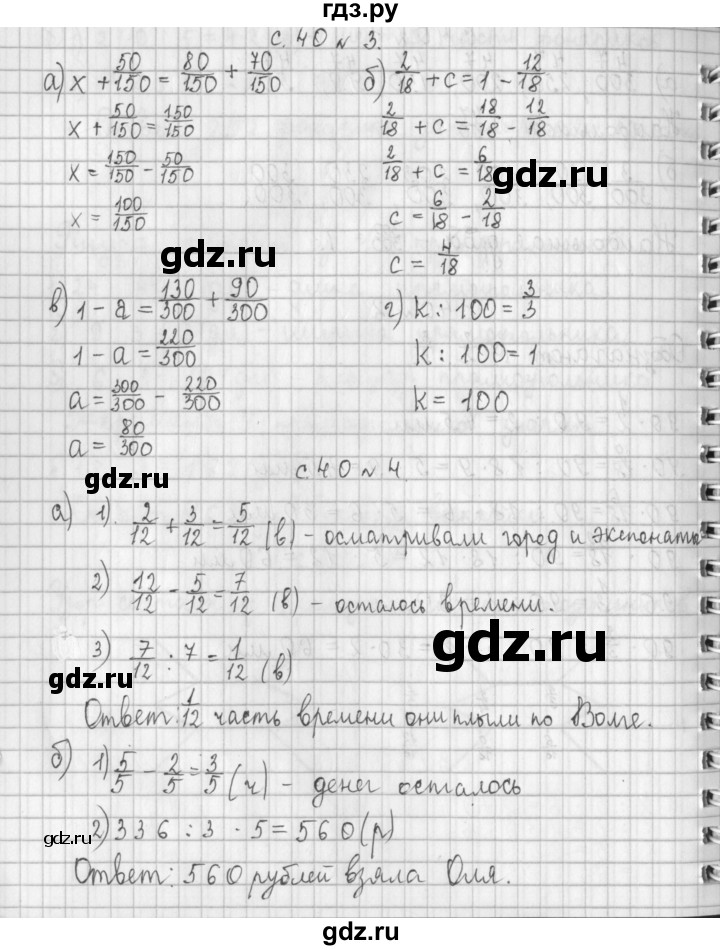 гдз.ру
с. 40 № 3.
а) x + 50/150 = 80/150 + 70/150
x + 50/150 = 150/150
x = 150/150 - 50/150
x = 100/150
б) 2/18 + c = 1 - 12/18
2/18 + c = 18/18 - 12/18
2/18 + c = 6/18
c = 6/18 - 2/18
c = 4/18
gdz.ru
gdz.ru
в) 1 - a = 130/300 + 90/300
1 - a = 220/300
a = 300/300 - 220/300
a = 80/300
г) k : 100 = 3/3
k : 100 = 1
k = 100
с. 40 № 4.
gdz.ru
а) 1). 2/12 + 3/12 = 5/12 (в) - осматривали город и экспонаты
2) 12/12 - 5/12 = 7/12 (в) - осталось времени.
3) 7/12 : 7 = 1/12 (в)
gdz.ru
gdz.ru
Ответ: 1/12 часть времени они плыли по Волге.
б) 1) 5/5 - 2/5 = 3/5 (ч) - денег осталось
2) 336 : 3 · 5 = 560 (р)
gdz.ru
gdz.ru
Ответ: 560 рублей взяла Оля.
gdz.ru